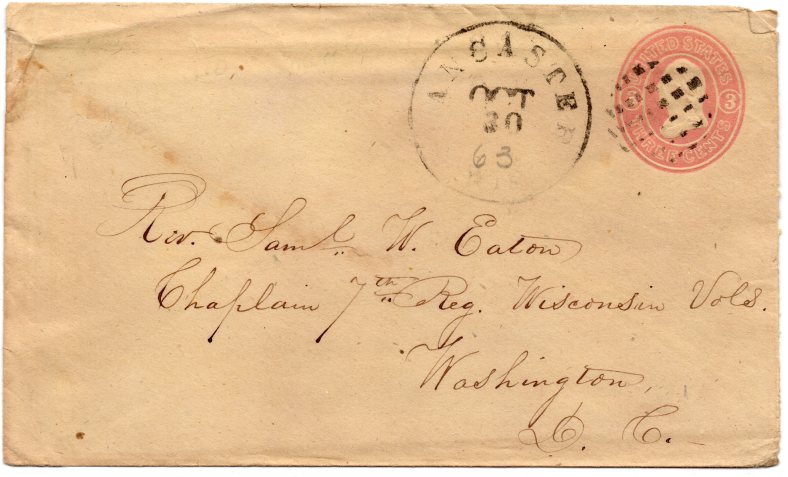 LANCASTER
OCT
30
63
UNITED STATES
3 3
THREE CENTS
Rev. Saml. W. Eaton
Chaplain 7th Reg. Wisconsin Vols.
Washington,
D. C.